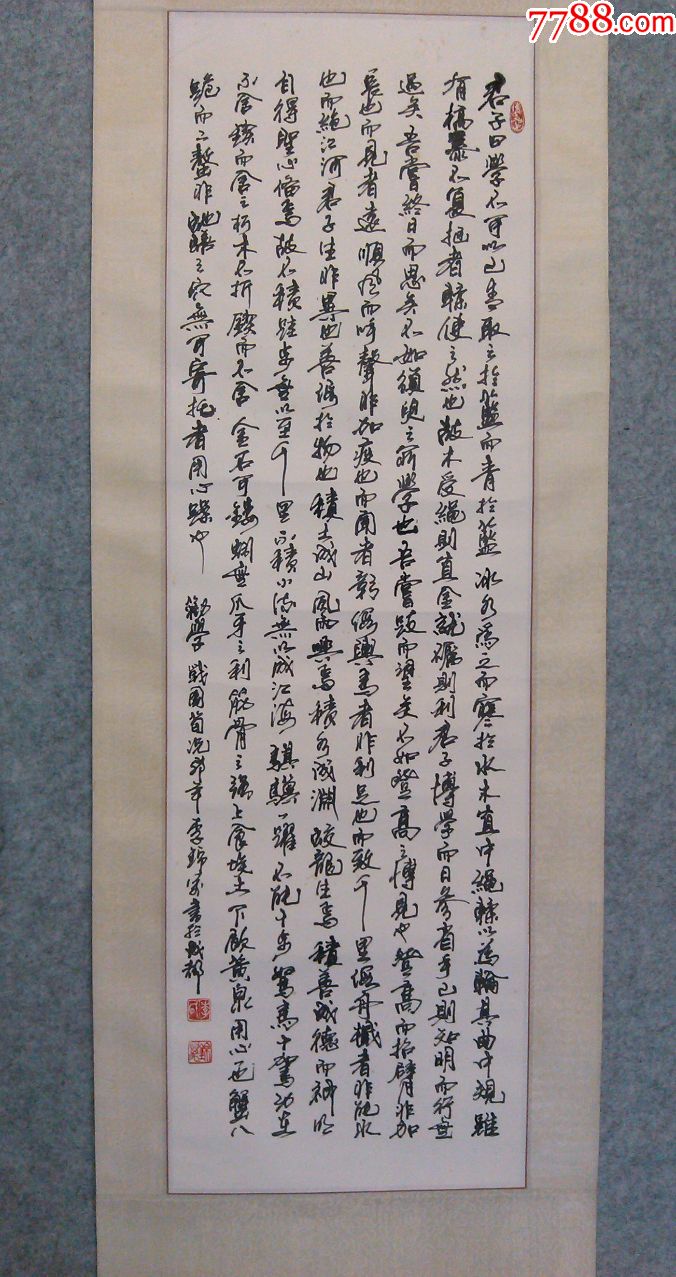 7788.com
君子曰學不可以已青取之於藍而青於藍冰水為之而寒於水木直中繩輮以為輪其曲中規雖
有槁暴不復挺者輮使之然也故木受繩則直金就礪則利君子博學而日參省乎己則知明而行無
過矣吾嘗終日而思矣不如須臾之所學也吾嘗跂而望矣不如登高之博見也登高而招臂非加
長也而見者遠順風而呼聲非加疾也而聞者彰假輿馬者非利足也而致千里假舟檝者非能水
也而絕江河君子生非異也善假於物也積土成山風雨興焉積水成淵蛟龍生焉積善成德而神明
自得聖心備焉故不積跬步無以至千里不積小流無以成江海騏驥一躍不能十步駑馬十駕功在
不舍鍥而舍之朽木不折鍥而不舍金石可鏤蚓無爪牙之利筋骨之強上食埃土下飲黃泉用心一也蟹八
跪而二螯非蛇蟮之穴無可寄托者用心躁也 勸學 戰國荀況 李錦 書於成都